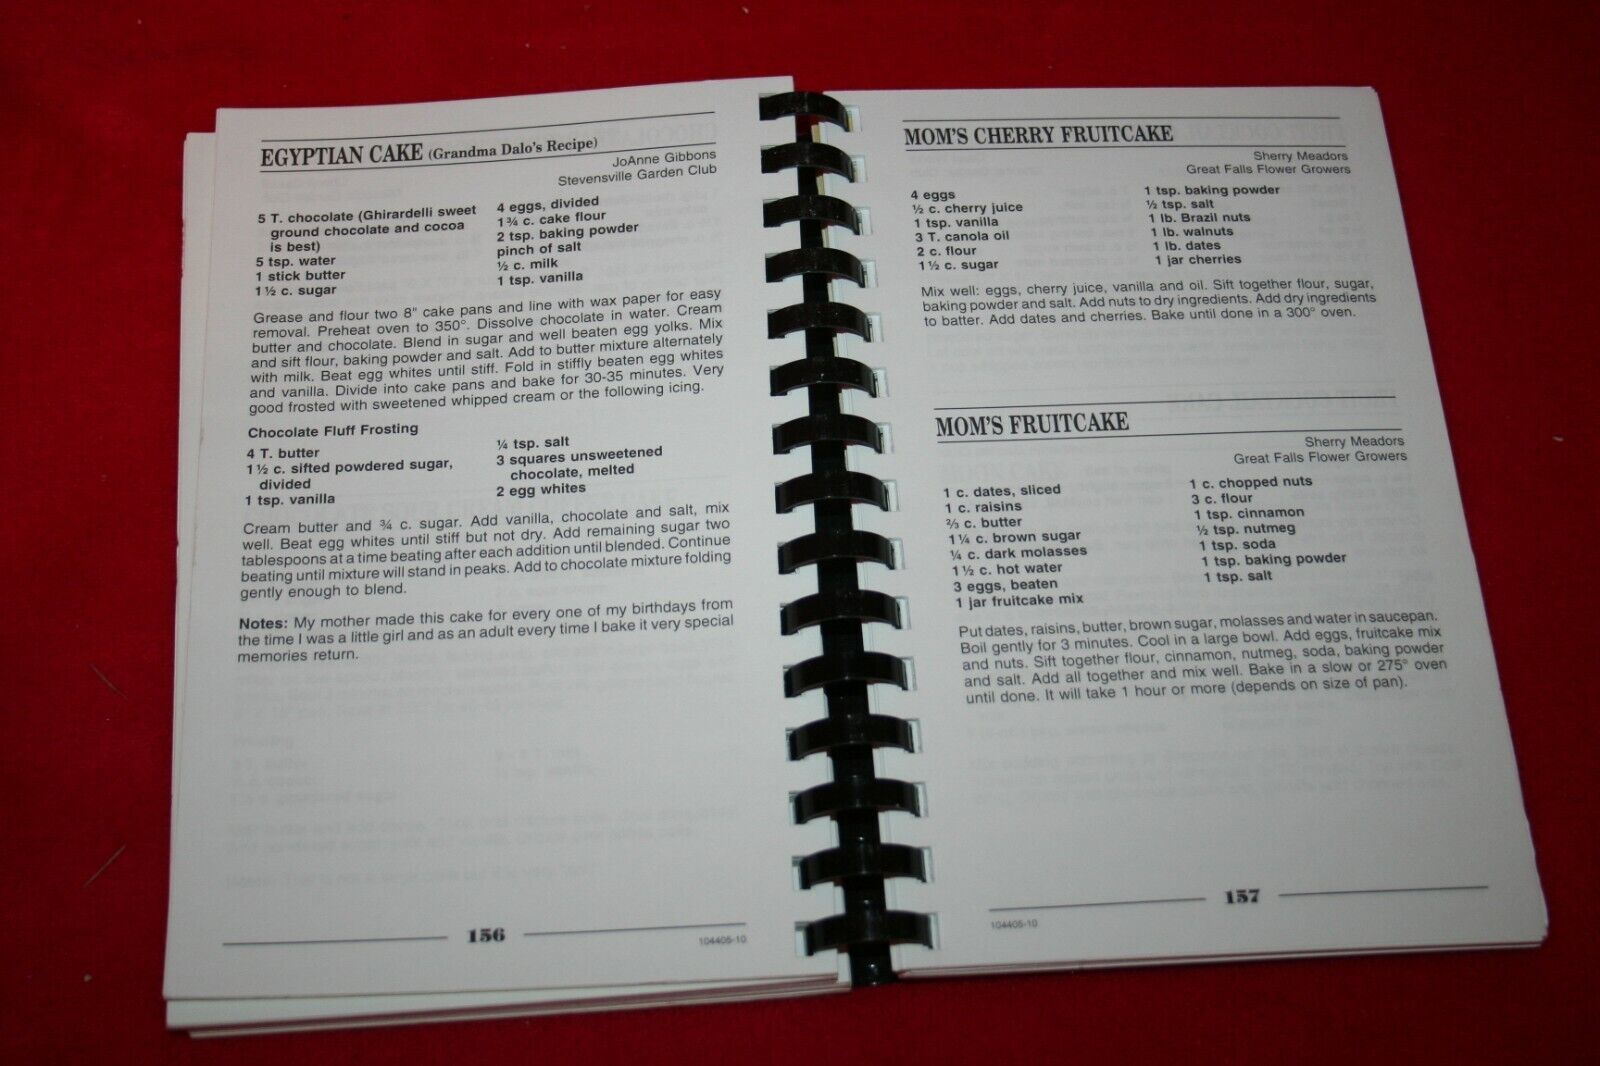 EGYPTIAN CAKE (Grandma Dalo's Recipe)
JoAnne Gibbons
Stevensville Garden Club
5 T. chocolate (Ghirardelli sweet
ground chocolate and cocoa
is best)
5 tsp. water
1 stick butter
1½ c. sugar
4 eggs, divided
1¾ c. cake flour
2 tsp. baking powder
pinch of salt
½ c. milk
1 tsp. vanilla
Grease and flour two 8" cake pans and line with wax paper for easy
removal. Preheat oven to 350°. Dissolve chocolate in water. Cream
butter and chocolate. Blend in sugar and well beaten egg yolks. Mix
and sift flour, baking powder and salt. Add to butter mixture alternately
with milk. Beat egg whites until stiff. Fold in stiffly beaten egg whites
and vanilla. Divide into cake pans and bake for 30-35 minutes. Very
good frosted with sweetened whipped cream or the following icing.
Chocolate Fluff Frosting
4 T. butter
1½ c. sifted powdered sugar,
divided
1 tsp. vanilla
¼ tsp. salt
3 squares unsweetened
chocolate, melted
2 egg whites
Cream butter and ¾ c. sugar. Add vanilla, chocolate and salt, mix
well. Beat egg whites until stiff but not dry. Add remaining sugar two
tablespoons at a time beating after each addition until blended. Continue
beating until mixture will stand in peaks. Add to chocolate mixture folding
gently enough to blend.
Notes: My mother made this cake for every one of my birthdays from
the time I was a little girl and as an adult every time I bake it very special
memories return.
156
104405-10
MOM'S CHERRY FRUITCAKE
Sherry Meadors
Great Falls Flower Growers
4 eggs
½ c. cherry juice
1 tsp. vanilla
3 T. canola oil
2 c. flour
1½ c. sugar
1 tsp. baking powder
½ tsp. salt
1 lb. Brazil nuts
1 lb. walnuts
1 lb. dates
1 jar cherries
Mix well: eggs, cherry juice, vanilla and oil. Sift together flour, sugar,
baking powder and salt. Add nuts to dry ingredients. Add dry ingredients
to batter. Add dates and cherries. Bake until done in a 300° oven.
MOM'S FRUITCAKE
Sherry Meadors
Great Falls Flower Growers
1 c. dates, sliced
1 c. raisins
⅔ c. butter
1¼ c. brown sugar
¼ c. dark molasses
1½ c. hot water
3 eggs, beaten
1 jar fruitcake mix
1 c. chopped nuts
3 c. flour
1 tsp. cinnamon
½ tsp. nutmeg
1 tsp. soda
1 tsp. baking powder
1 tsp. salt
Put dates, raisins, butter, brown sugar, molasses and water in saucepan.
Boil gently for 3 minutes. Cool in a large bowl. Add eggs, fruitcake mix
and nuts. Sift together flour, cinnamon, nutmeg, soda, baking powder
and salt. Add all together and mix well. Bake in a slow or 275° oven
until done. It will take 1 hour or more (depends on size of pan).
104405-10
157